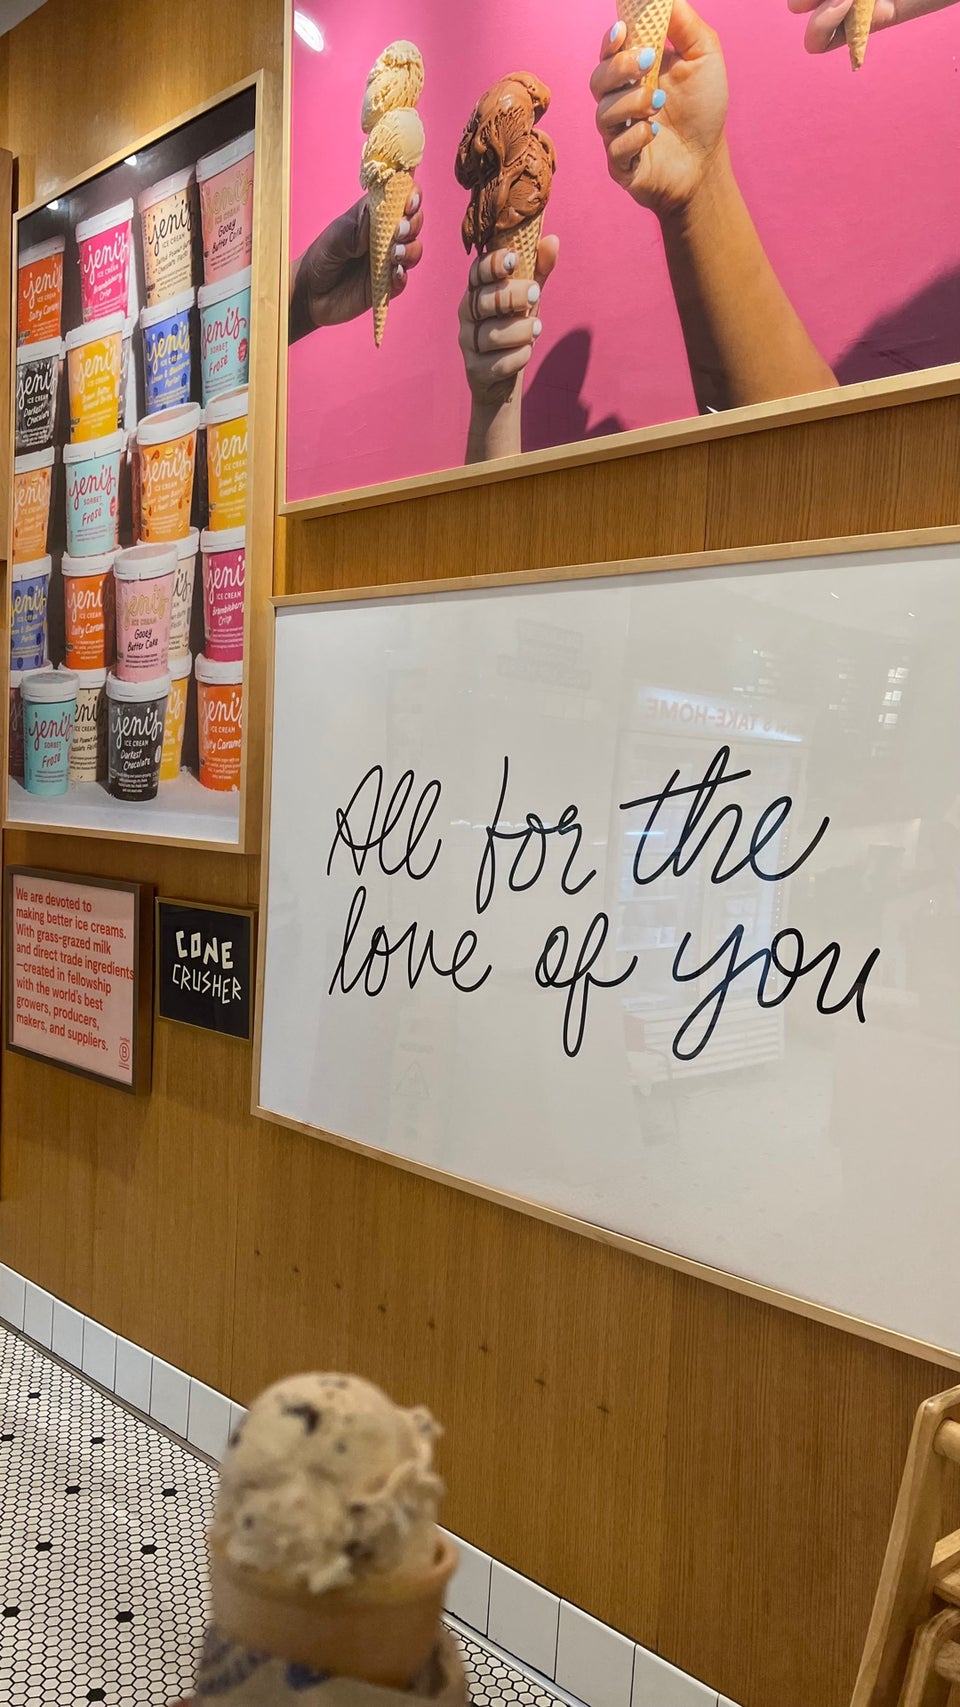 jeni's
ICE CREAM
Salty Caramel
jeni's
ICE CREAM
Brambleberry
Crisp
jeni's
ICE CREAM
jeni's
ICE CREAM
Gooey
Butter Cake
jeni's
ICE CREAM
Darkest
Chocolate
jeni's
ICE CREAM
jeni's
ICE CREAM
jeni's
SORBET
Frosé
jeni's
SORBET
Frosé
jeni's
ICE CREAM
jeni
ICE CREAM
jeni
ICE CREAM
jeni
ICE CREAM
Salty Caram
jeni's
ICE CREAM
Gooey
Butter Cake
jeni
ICE CREAM
Brambleberry
Crisp
jeni's
SORBET
Frosé
jeni's
ICE CREAM
Darkest
Chocolate
jeni's
ICE CREAM
Salty Caramel
We are devoted to
making better ice creams.
With grass-grazed milk
and direct trade ingredients
—created in fellowship
with the world's best
growers, producers,
makers, and suppliers.
CONE
CRUSHER
TAKE-HOME
All for the
love of you